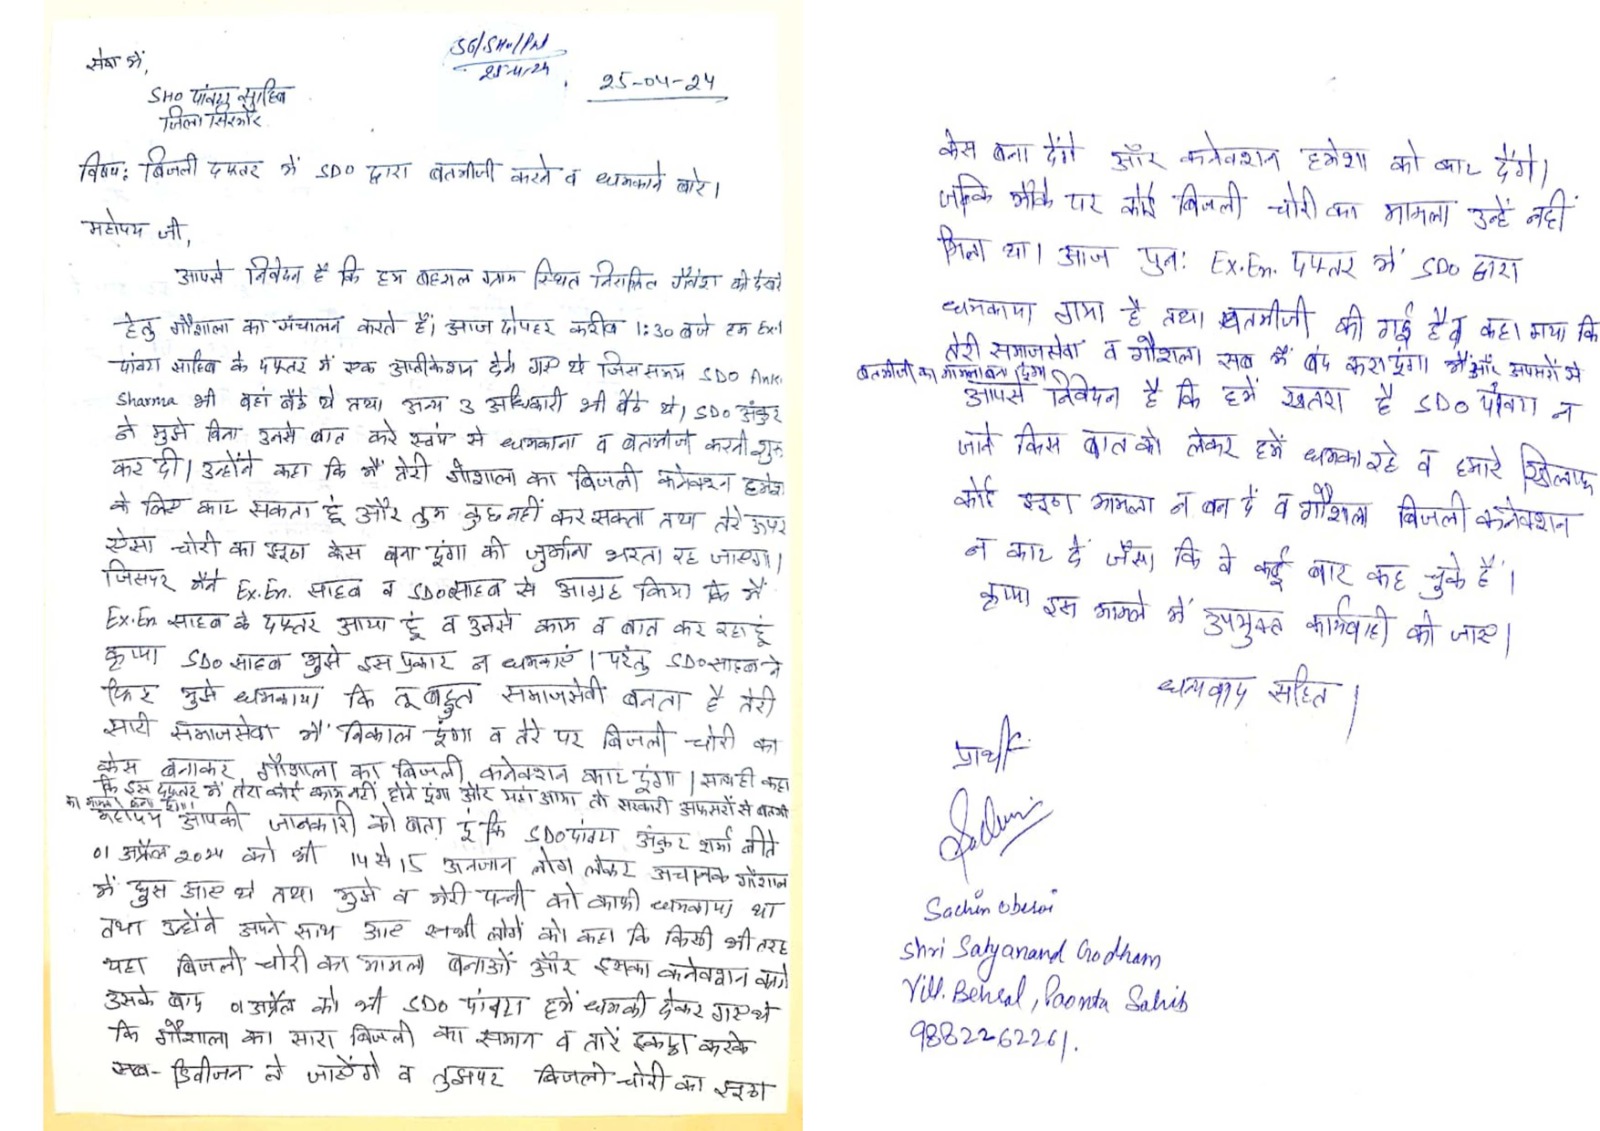 सेवा में,
SHO पांवटा साहिब
जिला सिरमौर
25-04-24
विषय: बिजली दफ्तर में SDO द्वारा बतमीजी करने व धमकाने बारे।
महोदय जी,
आपसे निवेदन है कि हम बहराल ग्राम स्थित निराश्रित गौवंश की देखरे
हेतु गौशाला का संचालन करते हैं। आज दोपहर करीब 1:30 बजे हम Ex.
पांवटा साहिब के दफ्तर में एक अप्लीकेशन देने गए थे जिस समय SDO Ank
Sharma भी वहां बैठे थे तथा अन्य 3 अधिकारी भी बैठे थे, SDO अंकुर
ने मुझे बिना उनसे बात करे स्वंय से धमकाना व बतमीजी करनी शुरू
कर दी। उन्होंने कहा कि मैं तेरी गौशाला का बिजली कनेक्शन हमेश
के लिए काट सकता हूं और तुम कुछ नहीं कर सकता तथा तेरे ऊपर
ऐसा चोरी का झूठा केस बना दूंगा की जुर्माना भरता रह जाएगा।
जिसपर मैंने Ex.En. साहब व SDO साहब से आग्रह किया कि मैं
Ex.En साहब के दफ्तर आया हूं व उनसे काम व बात कर रहा हूं
कृपा SDO साहब मुझे इस प्रकार न धमकाएं। परंतु SDO साहब ने
फिर मुझे धमकाया कि तू बहुत समाजसेवी बनता है तेरी
सारी समाजसेवा मैं निकाल दूंगा व तेरे पर बिजली चोरी का
केस बनाकर गौशाला का बिजली कनेक्शन काट दूंगा। साथ ही कहा
कि इस दफ्तर में तेरा कोई काम नहीं होने दूंगा और यहां आया तो सरकारी अफसरों से बतमी
का मामला बना दूंगा।
महोदय आपकी जानकारी को बता दूं कि SDO पांवटा अंकुर शर्मा बीते
01 अप्रैल 2024 को भी 14 से 15 अनजान लोग लेकर अचानक गौशाल
में घुस आए थे तथा मुझे व मेरी पत्नी को काफी धमकाया था
तथा उन्होंने अपने साथ आए सभी लोगों को कहा कि किसी भी तरह
यहा बिजली चोरी का मामला बनाओ और इसका कनेक्शन काटो
उसके बाद 01 अप्रैल को भी SDO पांवटा हमें धमकी देकर गए थे
कि गौशाला का सारा बिजली का समान व तारें इकट्ठा करके
सब-डिवीजन ले जाएंगे व तुझपर बिजली चोरी का झूठा
केस बना देंगे और कनेक्शन हमेशा को काट देंगे।
जबकि मौके पर कोई बिजली चोरी का मामला उन्हें नहीं
मिला था। आज पुन: Ex.En. दफ्तर में SDO द्वारा
धमकाया गया है तथा बतमीजी की गई है व कहा गया कि
तेरी समाजसेवा व गौशाला सब मैं बंद करा दूंगा मैं और अफसरों से
बतमीजी का मामला बना दूंगा
आपसे निवेदन है कि हमें खतरा है SDO पांवटा न
जाने किस बात को लेकर हमें धमका रहे व हमारे खिलाफ
कोई झूठा मामला न बना दें व गौशाला बिजली कनेक्शन
न काट दें जैसा कि वे कई बार कह चुके हैं।
कृपा इस मामले में उपयुक्त कार्यवाही की जाए।
धन्यवाद सहित।
प्रार्थी
Sachin
Sachin Oberoi
Shri Satyanand Godham
Vill. Behral, Paonta Sahib
9882262261.